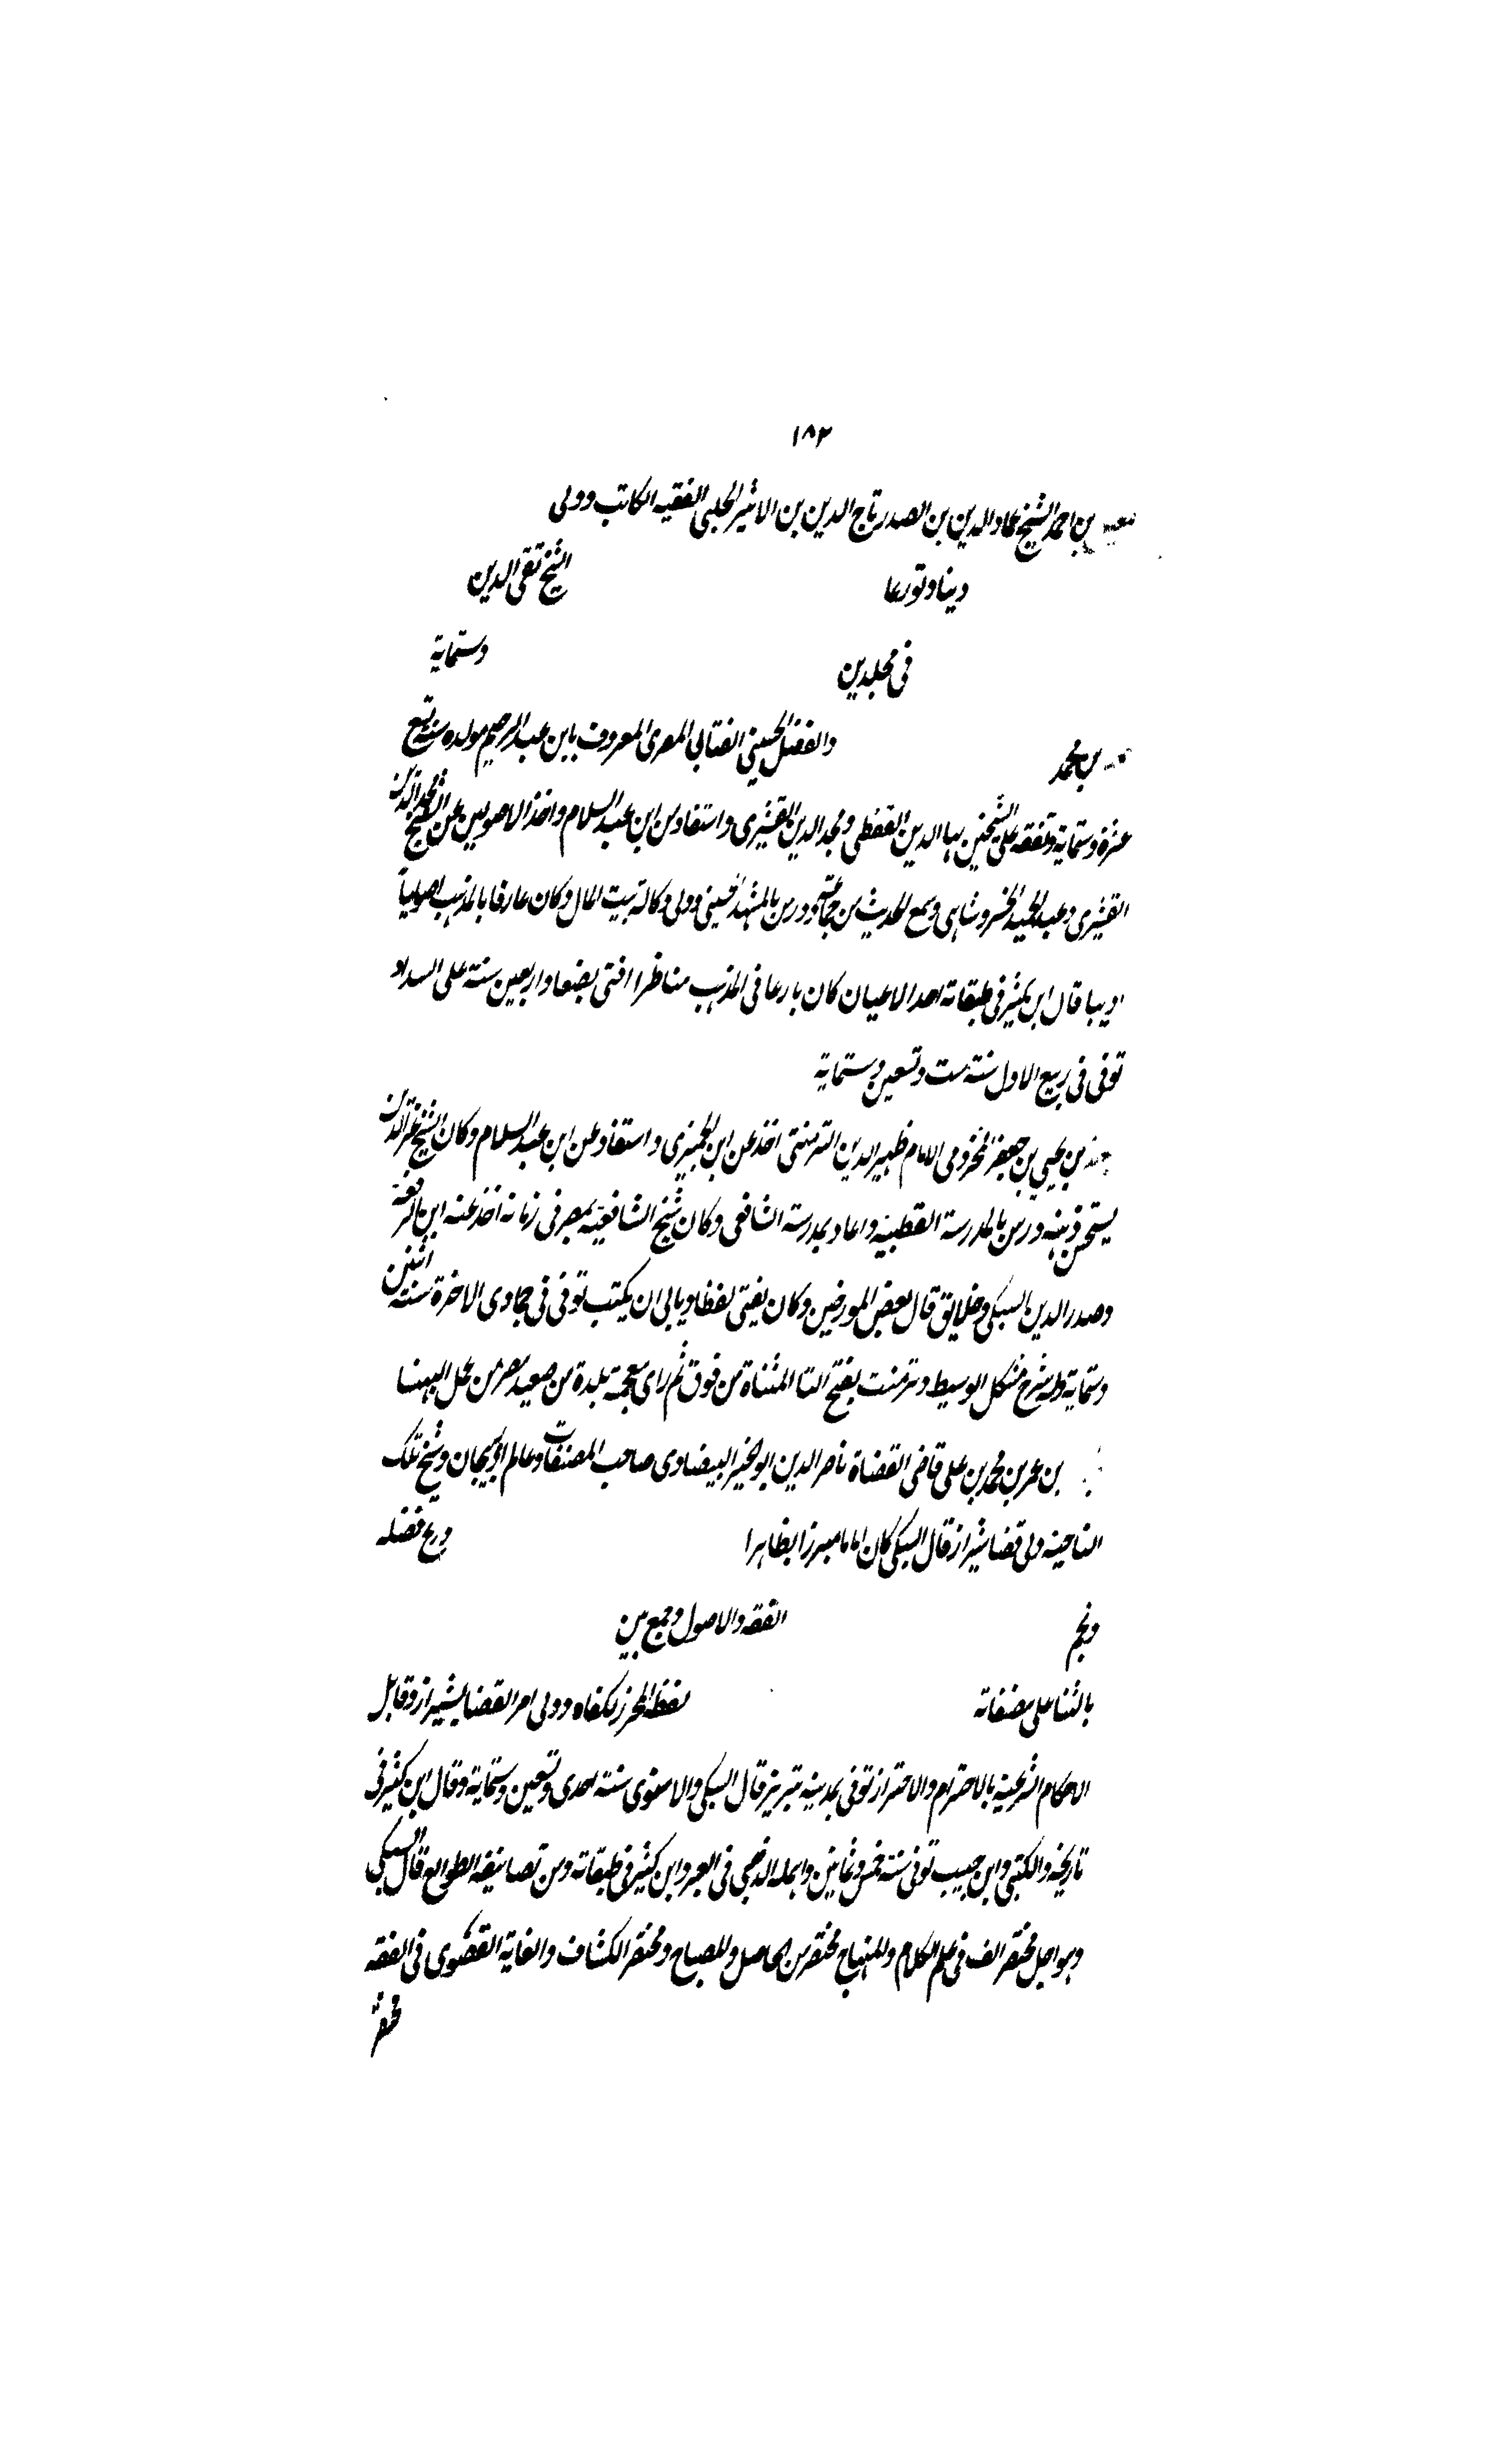 ١٨٢
بن احمد الشيخ عماد الدين بن الصدر تاج الدين بن الاثير الحلبى الفقيه الكاتب وولى
دينا وتورعا الشيخ تقى الدين
فى مجلدين وستماية
بن محمد والفضل الحسينى المعروف بابن عبد الرحيم مولده سنة تسع
عشرة وستماية وتفقه على الشيخين بها الدين القفطى ومجد الدين القشيرى واستفاد من ابن عبد السلام واخذ الاصولين عن الشيخ مجد الدين
القشيرى وعبد الحميد الخسروشاهى وسمع الحديث من جماعة ودرس بالمشهد الحسينى وولى وكالة بيت المال وكان عارفا بالمذهب اصولياً
اديبا قال ابن كثير فى طبقاته احد الاعيان كان بارعا فى المذهب مناظرا افتى بضعا واربعين سنة على السداد
توفى فى ربيع الاول سنة ست وتسعين وستماية
بن يحيى بن جعفر المخزومى الامام ظهير الدين التزمنتى اخذ عن ابن الجميزى واستفاد عن ابن عبد السلام وكان الشيخ عز الدين
يستحسن ذهنه ودرس بالمدرسة القطبية واعاد بمدرسة الشافعى وكان شيخ الشافعية بمصر فى زمانه اخذ عنه ابن الرفعة
وصدر الدين السبكى وخلايق قال بعض المورخين وكان يفتى لفظا ويابى ان يكتب توفى فى جمادى الاخرة سنة اثنين
وستماية وله شرح مشكل الوسيط وتزمنت بفتح التا المثناة من فوق ثم زاى معجمة بلدة من صعيد مصر من عمل البهنسا
بن عمر بن محمد بن على قاضى القضاة ناصر الدين ابو الخير البيضاوى صاحب المصنفات وعالم اذربيجان وشيخ تلك
الناحية ولى قضا شيراز قال السبكى كان اماما مبرزا نظارا وبرع فضله
ونجم الفقه والاصول وجمع بين
بالثنا على مصنفاته لفظه المحرر لكفاه وولى امر القضا بشيراز وقابل
الاحكام الشرعية بالاحترام والاحتراز توفى بمدينة تبريز قال السبكى والاسنوى سنة احدى وتسعين وستماية وقال ابن كثير فى
تاريخه والكتبى وابن حبيب توفى سنة خمس وثمانين واهمله الذهبى فى العبر وابن كثير فى طبقاته ومن تصانيفه الطوالع قال السبكى
وهو اجل مختصر الف فى علم الكلام والمنهاج مختصر من الحاصل والمصباح ومختصر الكشاف والغاية القصوى فى الفقه
مختصر